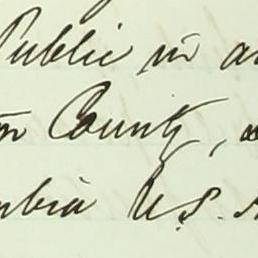 Public in a
on County,
mbia U.S.